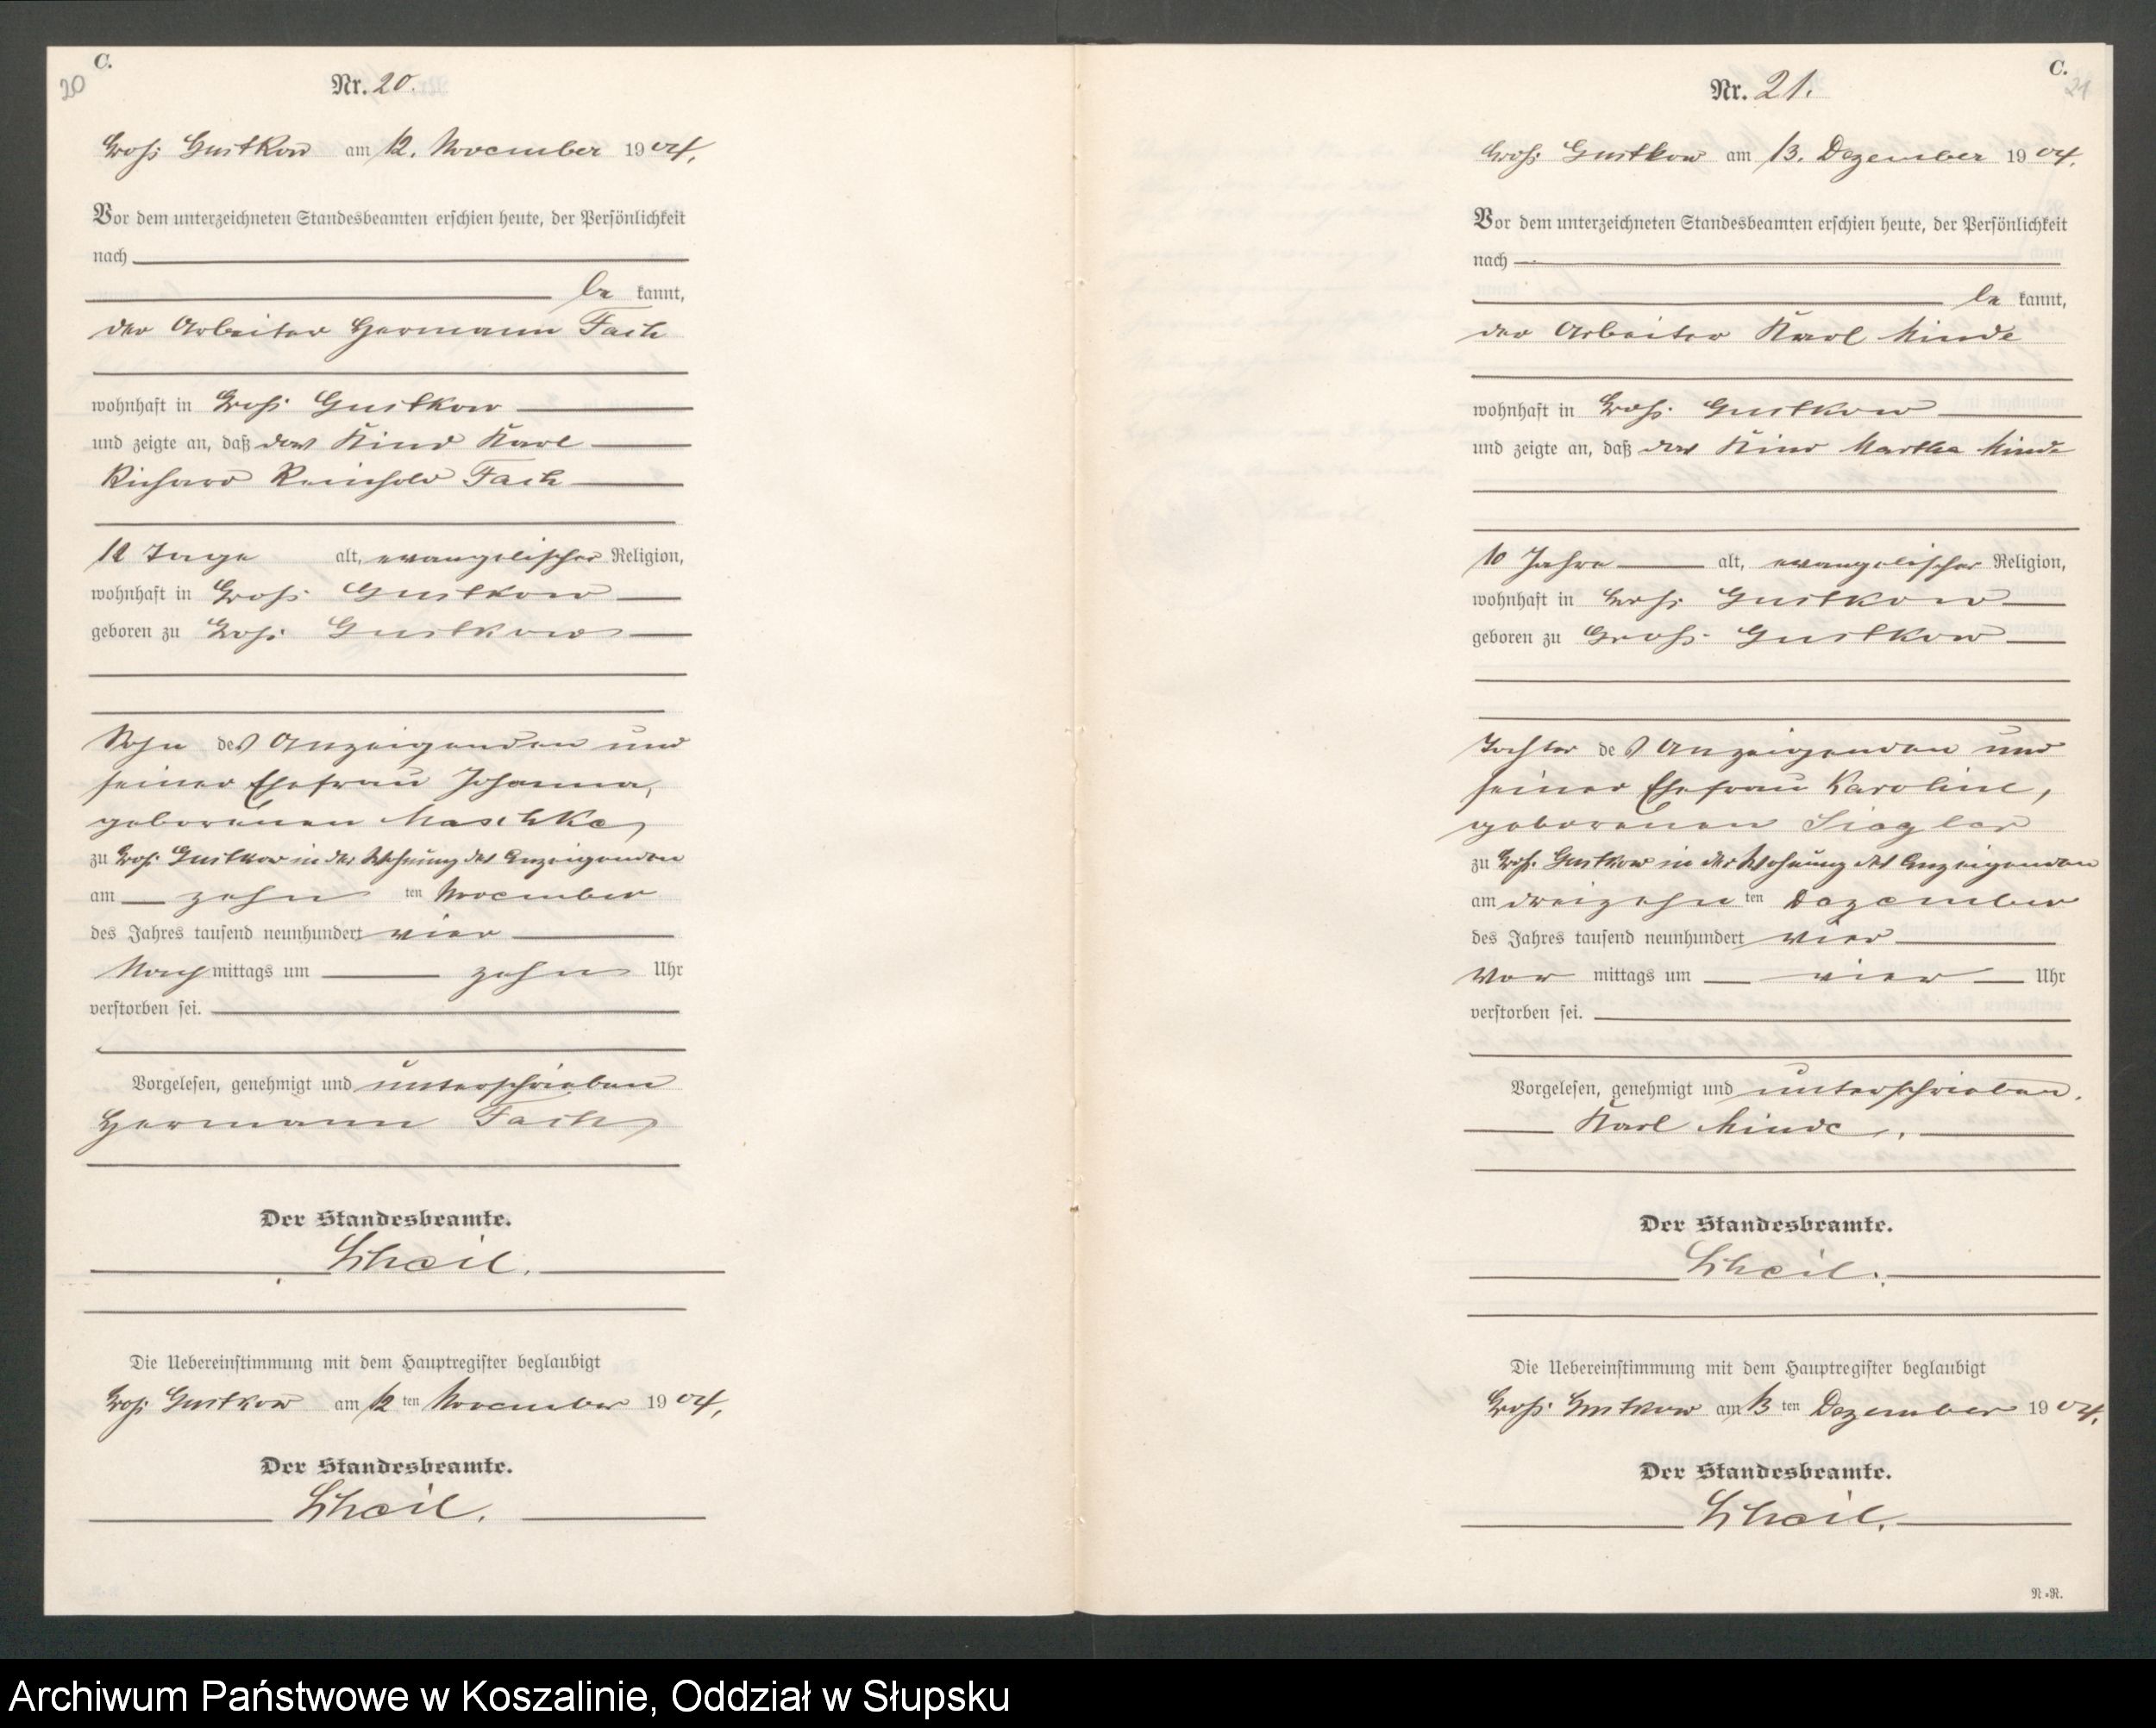 C.
20
Nr. 20.
Groß Gustkow am 12. November 1904.
Vor dem unterzeichneten Standesbeamten erschien heute, der Persönlichkeit
nach
be kannt,
der Arbeiter Hermann Fach
wohnhaft in Groß Gustkow
und zeigte an, daß das Kind Karl
Richard Reinhold Fach
12 Tage alt, evangelischer Religion,
wohnhaft in Groß Gustkow
geboren zu Groß Gustkow
Sohn des Anzeigenden und
seiner Ehefrau Johanna,
geborenen Maschke,
zu Groß Gustkow in der Wohnung des Anzeigenden
am zehn ten November
des Jahres tausend neunhundert vier
Nach mittags um zehn Uhr
verstorben sei.
Vorgelesen, genehmigt und unterschrieben
Hermann Fach
Der Standesbeamte.
Die Uebereinstimmung mit dem Hauptregister beglaubigt
Groß Gustkow am 12 ten November 1904.
Der Standesbeamte.
C.
21
Nr. 21.
Groß Gustkow am 13. Dezember 1904.
Vor dem unterzeichneten Standesbeamten erschien heute, der Persönlichkeit
nach
be kannt,
der Arbeiter Karl Minde
wohnhaft in Groß Gustkow
und zeigte an, daß das Kind Martha Minde
10 Jahre alt, evangelischer Religion,
wohnhaft in Groß Gustkow
geboren zu Groß Gustkow
Tochter des Anzeigenden und
seiner Ehefrau Karoline,
geborenen
zu Groß Gustkow in der Wohnung des Anzeigenden
am dreizehn ten Dezember
des Jahres tausend neunhundert vier
Vor mittags um vier Uhr
verstorben sei.
Vorgelesen, genehmigt und unterschrieben.
Karl Minde.
Der Standesbeamte.
Die Uebereinstimmung mit dem Hauptregister beglaubigt
Groß Gustkow am 13 ten Dezember 1904.
Der Standesbeamte.
N.=R.
Archiwum Państwowe w Koszalinie, Oddział w Słupsku